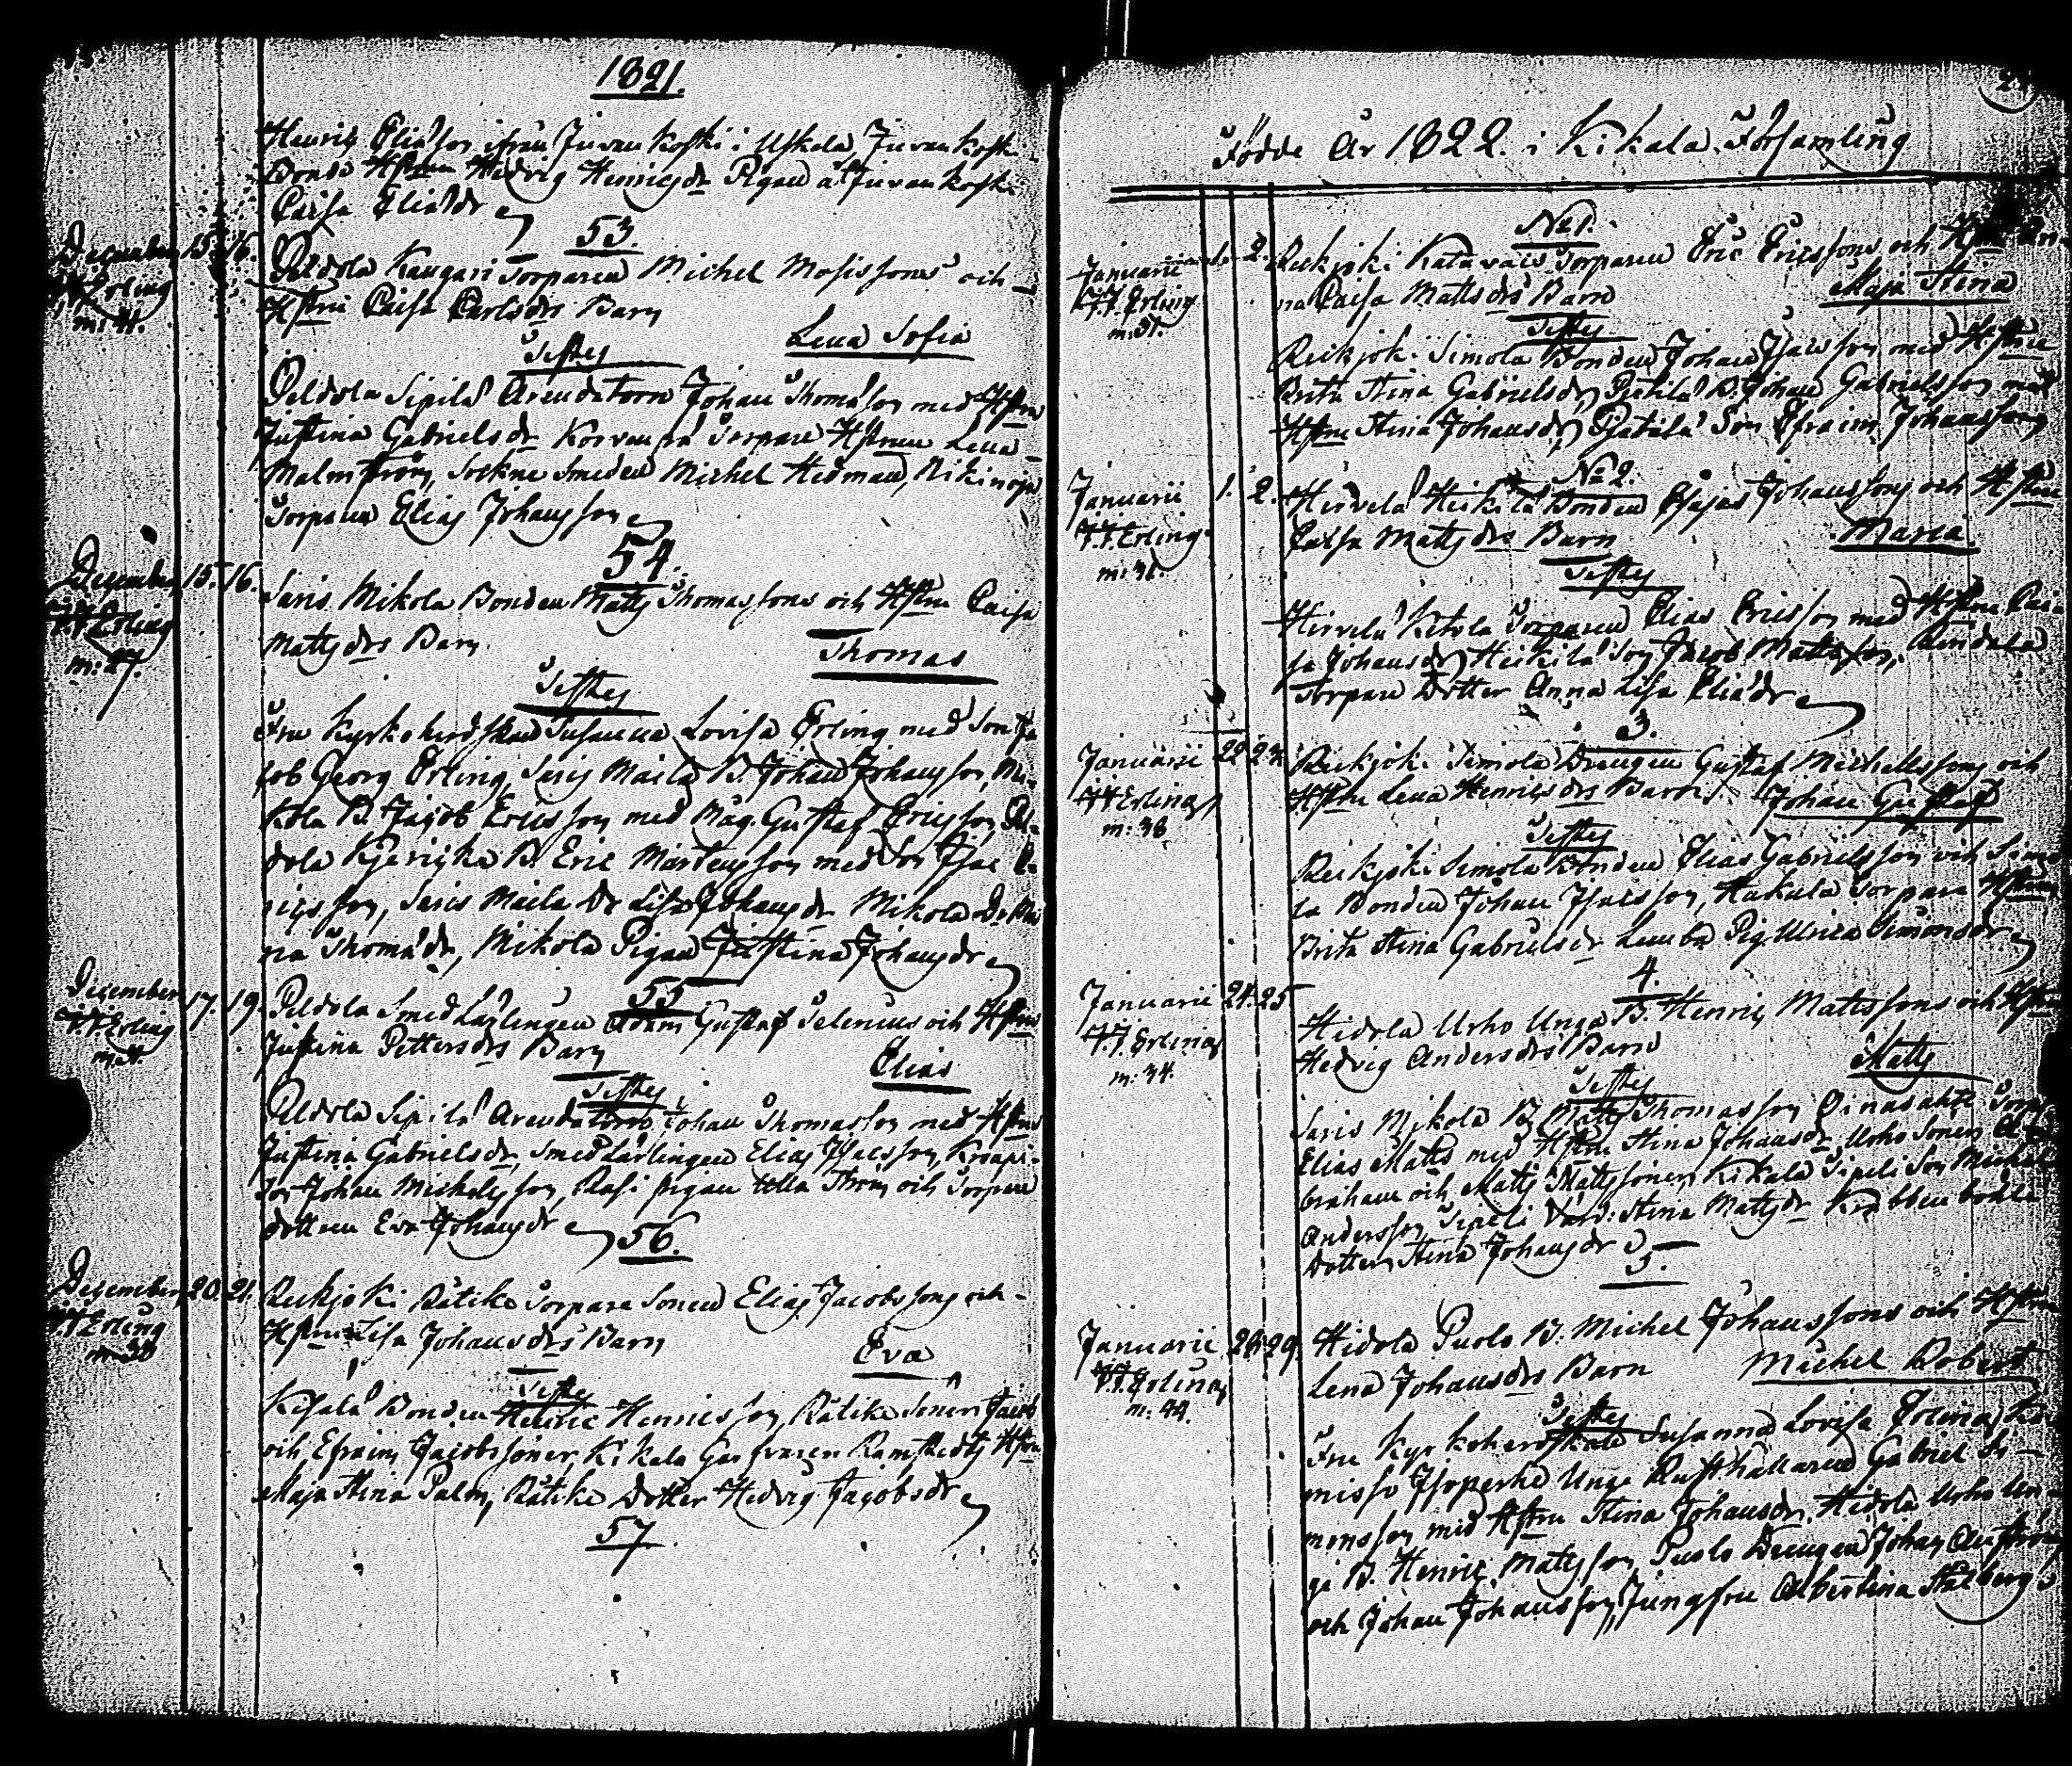 1821.
Henric Eliasson ifrån Juvankoski i Uskela, Juvankoski
Bonde Hstrun Hedvig Henricsdr Pigan a Juvankoski
Caisa Eliædr
53.
December 15. 16. Peldola Kangari Torparen Michel Mosissons och
J.F. Erling Hstru Caisa Carlsdrs Barn
m: 41. Lena Sofia
Testes
Peldola Sipilä Arendatorn Johan Thomasson med Hstru
Justina Gabrielsdr Korvenpä Torpare Hstrun Lena
Malmström, Sockne Smeden Michel Hedman, Rikinoja
Torparen Elias Johansson
54.
December 15. 16. Saris Mikola Bonden Matts Thomassons och Hstru Caisa
J.F. Erling Mattsdrs Barn
m: 27. Thomas
Testes
Fru Kyrkoherdskan Susanna Lovisa Erling med Son Ja
cob Georg Erling, Saris Maila B. Johan Johansson, Mi-
kola B. Jacob Ericsson med Måg. Gustaf Ericsson Pel-
dola B. Eric Mårtensson med Son Isac
ricsson, Saris Maila Dr Lisa Johansdr Mikola Dr
na Thomædr, Mikola Pigan Justina Johansdr
55
December 17. 19. Peldola Smed Lärlingen Adam Gustaf Selenius och Hstrus
J.F. Erling Justina Pettersdrs Barn
Elias
Testes
Peldola Sipilä Arendatorn Johan Thomasson med Hstru
Justina Gabrielsdr, Smed Lärlingen Elias Isacsson,
Son Johan Michelsson, Rasi pigan Ulla Ström och Torpare
dottren Eva Johansdr
56.
December 20. 21. Rekijoki Rätikö Torpare Sonen Elias Jacobssons och
J.F. Erling Hstrus Lisa Johansdrs Barn
m: 38 Eva
Testes
Kisala Bonden Henric Henricsson, Rätikö Söner Jacob
och Efraim Jacobssöner, Kikala Ramstedts Hstru
Maja Stina Palm, Rätikö Dotter Hedvig Jacobsdr
57.
Födde År 1822. i Kikala Församling
No 1.
Januarii 1. 2. Rekijoki Katavais Torparen Eric Ericssons och Hstru An-
J.F. Erling na Caisa Mattsdrs Barn Maja Stina
m: 31.
Testes
Rekijoki Simola Bonden Johan Isacsson med Hstru
Brita Stina Gabrielsdr, Pietilä B. Johan Gabrielsson med
Hstru Stina Johansdr, Pietilä Son Efraim Johansson
No 2.
Januarii 1. 2. Hirvelä Heikilä Bonden Esajas Johanssons och Hstru
J.F. Erling Caisa Mattsdrs Barn Maria.
m: 36.
Testes
Hirvelä Ketola Torparen Elias Ericsson med Hstru Cai-
sa Johansdr, Heikilä Son Jacob Mattsson,
Torpare Dotter Anna Lisa Eliædr
3.
Januarii 22 24 Rekijoki Simola Drengen Gustaf Michelssons och
J.F. Erling Hstru Lena Henricsdrs Barn Johan Gustaf
m: 38
Testes
Rekijoki Simola Bonden Elias Gabrielsson och Simo
la Bonden Johan Isacsson, Hakala Torpare Hstrun
Brita Stina Gabrielsdr Pig. Ulrica Simonsdr
4.
Januarii 24. 25 Hidola Urho Unga B. Henric Mattssons och Hstru
J.F. Erling Hedvig Andersdrs Barn Matts
m: 34.
Testes
Saris Mikola B. Matts Thomasson Torp
Elias Matts med Hstru Stina Johansdr Urho Söner A
braham och Matts Mattssöner, Kikala Sipeli Son Michel
Andersson, Sipeli Värd: Stina Mattsdr Krabbenbråla
Dotter Stina Johansdr
5.
Januarii 28. 29. Hidola Puolo B. Michel Johanssons och Hstru
J.F. Erling Lena Johansdrs Barn Michel Robert
m: 44.
Testes
Fru Kyrkoherdskan Susanna Lovisa Erling,
Unge Rusthållaren Gabriel Si-
monsson med Hstru Stina Johansdr, Hidola Urho Un-
ge B. Henric Mattsson, Puolo Drengen Johan
och Johan Johansson, Jungfru Albertina Stålberg